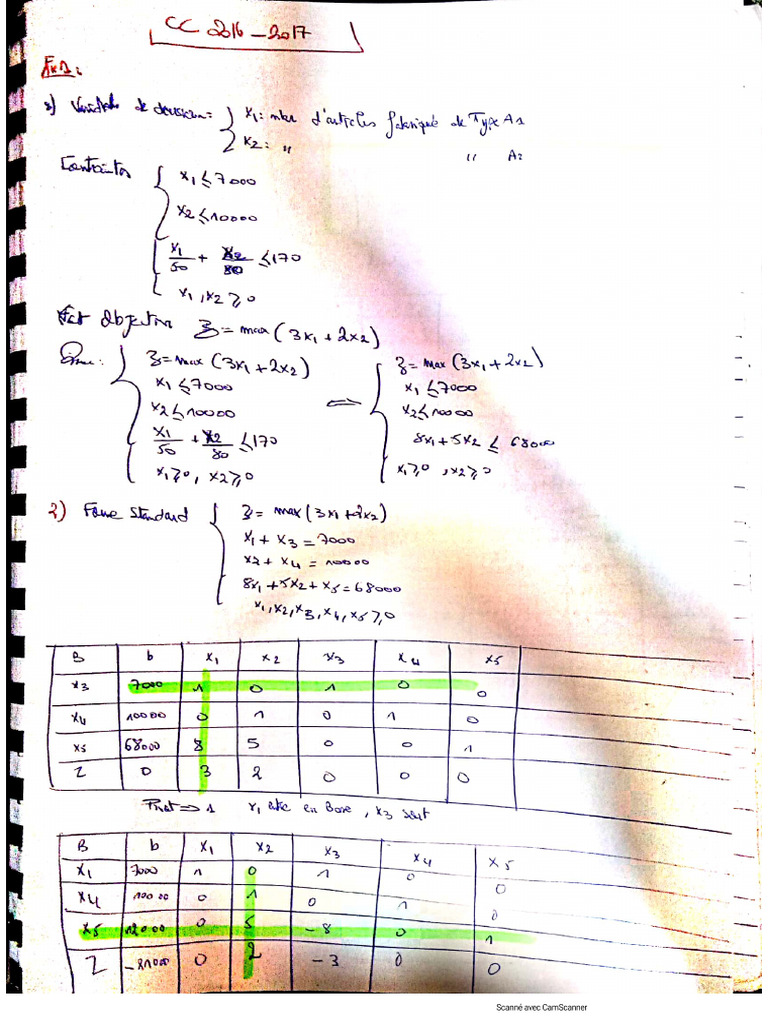 CC 2016-2017
Ex1:
1) Variable de décision: { x1: nbre d'articles fabriqué de Type A1
x2: " " A2
Contraintes { x1 ≤ 7000
x2 ≤ 10000
x1/50 + x2/80 ≤ 170
x1, x2 ≥ 0
Fct Objective Z = max (3x1 + 2x2)
{ Z = max (3x1 + 2x2)
x1 ≤ 7000
x2 ≤ 10000
x1/50 + x2/80 ≤ 170
x1 ≥ 0, x2 ≥ 0
⟺ { Z = max (3x1 + 2x2)
x1 ≤ 7000
x2 ≤ 10000
8x1 + 5x2 ≤ 68000
x1 ≥ 0, x2 ≥ 0
2) Forme Standard { Z = max (3x1 + 2x2)
x1 + x3 = 7000
x2 + x4 = 10000
8x1 + 5x2 + x5 = 68000
x1, x2, x3, x4, x5 ≥ 0
B b x1 x2 x3 x4 x5
x3 7000 1 0 1 0 0
x4 10000 0 1 0 1 0
x5 68000 8 5 0 0 1
Z 0 3 2 0 0 0
Pivot → 1 x1 entre en Base, x3 sort
B b x1 x2 x3 x4 x5
x1 7000 1 0 1 0 0
x4 10000 0 1 0 1 0
x5 12000 0 5 -8 0 1
Z -21000 0 2 -3 0 0
Scanné avec CamScanner